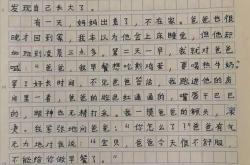 发现自己长大了。
有一天，妈妈出差了，不在家。爸爸也很
晚才回到家，我本以为他会上床睡觉，但他却
加班到凌晨三点多。第二天一早，我就对爸爸
说：“爸爸，我早餐想吃鸡蛋，要喝热牛奶。”
等了好长时间，不见爸爸答话，我跑进他的房
间里一看，爸爸的脸色红通通的，嘴唇干巴巴
的，眼神也无精打采。我一摸爸爸的额头，滚
烫。我紧张地问爸爸：“你怎么了？”爸爸有气
无力地对我说：“宝贝，爸爸今天很不舒服，
不能给你做早餐了。”